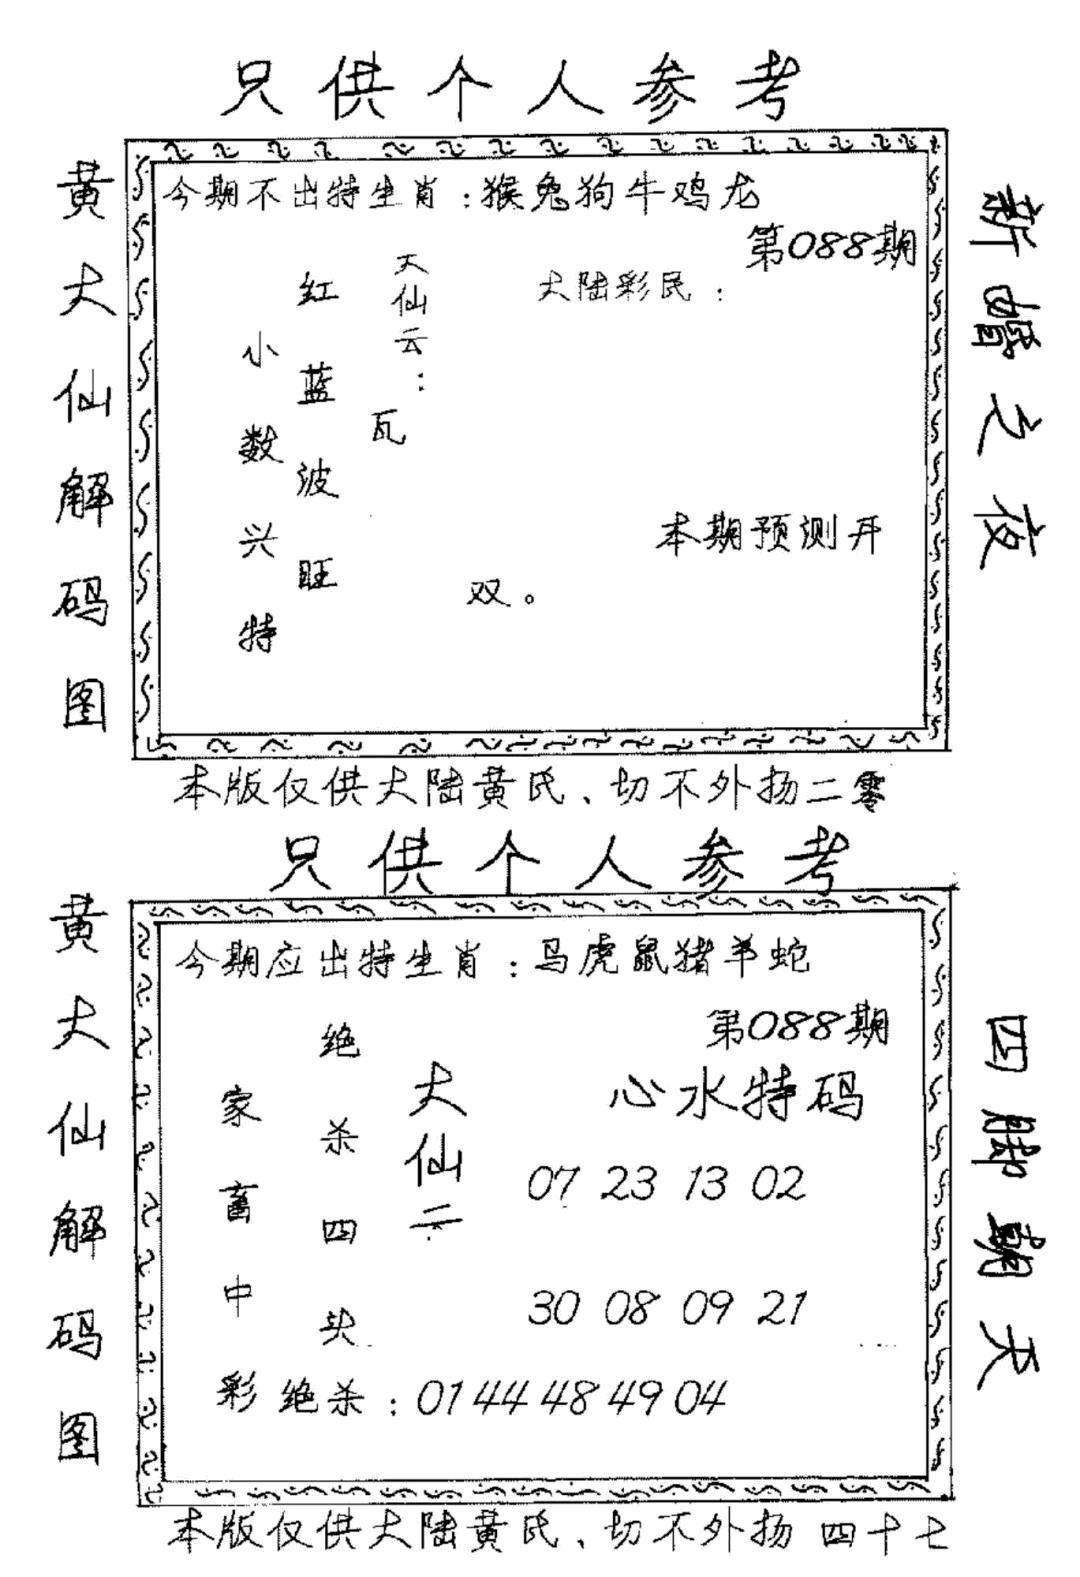 只供个人参考
黄大仙解码图
今期不出特生肖：猴兔狗牛鸡龙
第088期
大陆彩民：
天仙云：
瓦
红蓝波旺
小数兴特
本期预测开
双。
新婚之夜
本版仅供大陆黄氏、切不外扬二零
只供个人参考
黄大仙解码图
今期应出特生肖：马虎鼠猪羊蛇
第088期
心水特码
大仙云
绝杀四头
家畜中彩
07 23 13 02
30 08 09 21
绝杀：01 44 48 49 04
四脚朝天
本版仅供大陆黄氏、切不外扬 四十七